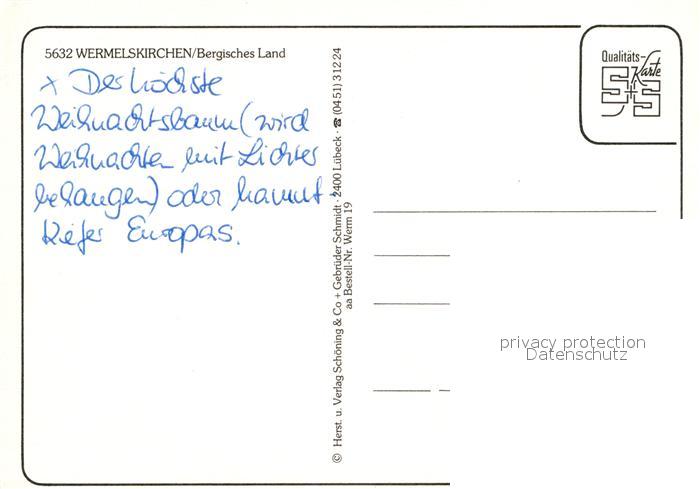 5632 WERMELSKIRCHEN/Bergisches Land
x Der höchste
Weihnachtsbaum (wird
Weihnachten mit Lichter
behangen) oder
Kiefer Europas.
© Herst. u. Verlag Schöning & Co + Gebrüder Schmidt · 2400 Lübeck · ☎ (04 51) 3 12 24
aa Bestell-Nr. Werm 19
Qualitäts-
Karte
S+S
privacy protection
Datenschutz